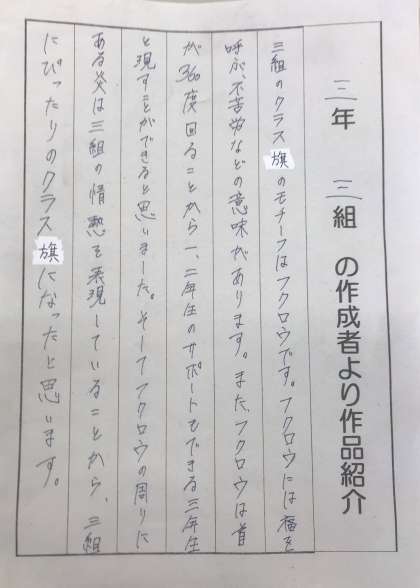 三年 三組 の作成者より作品紹介
三組のクラス旗のモチーフはフクロウです。フクロウには福を
呼ぶ、不苦労などの意味があります。また、フクロウは首
が360度回ることから一、二年生のサポートもできる三年生
と現すことができると思いました。そしてフクロウの周りに
ある炎は三組の情熱を表現していることから、三組
にぴったりのクラス旗になったと思います。